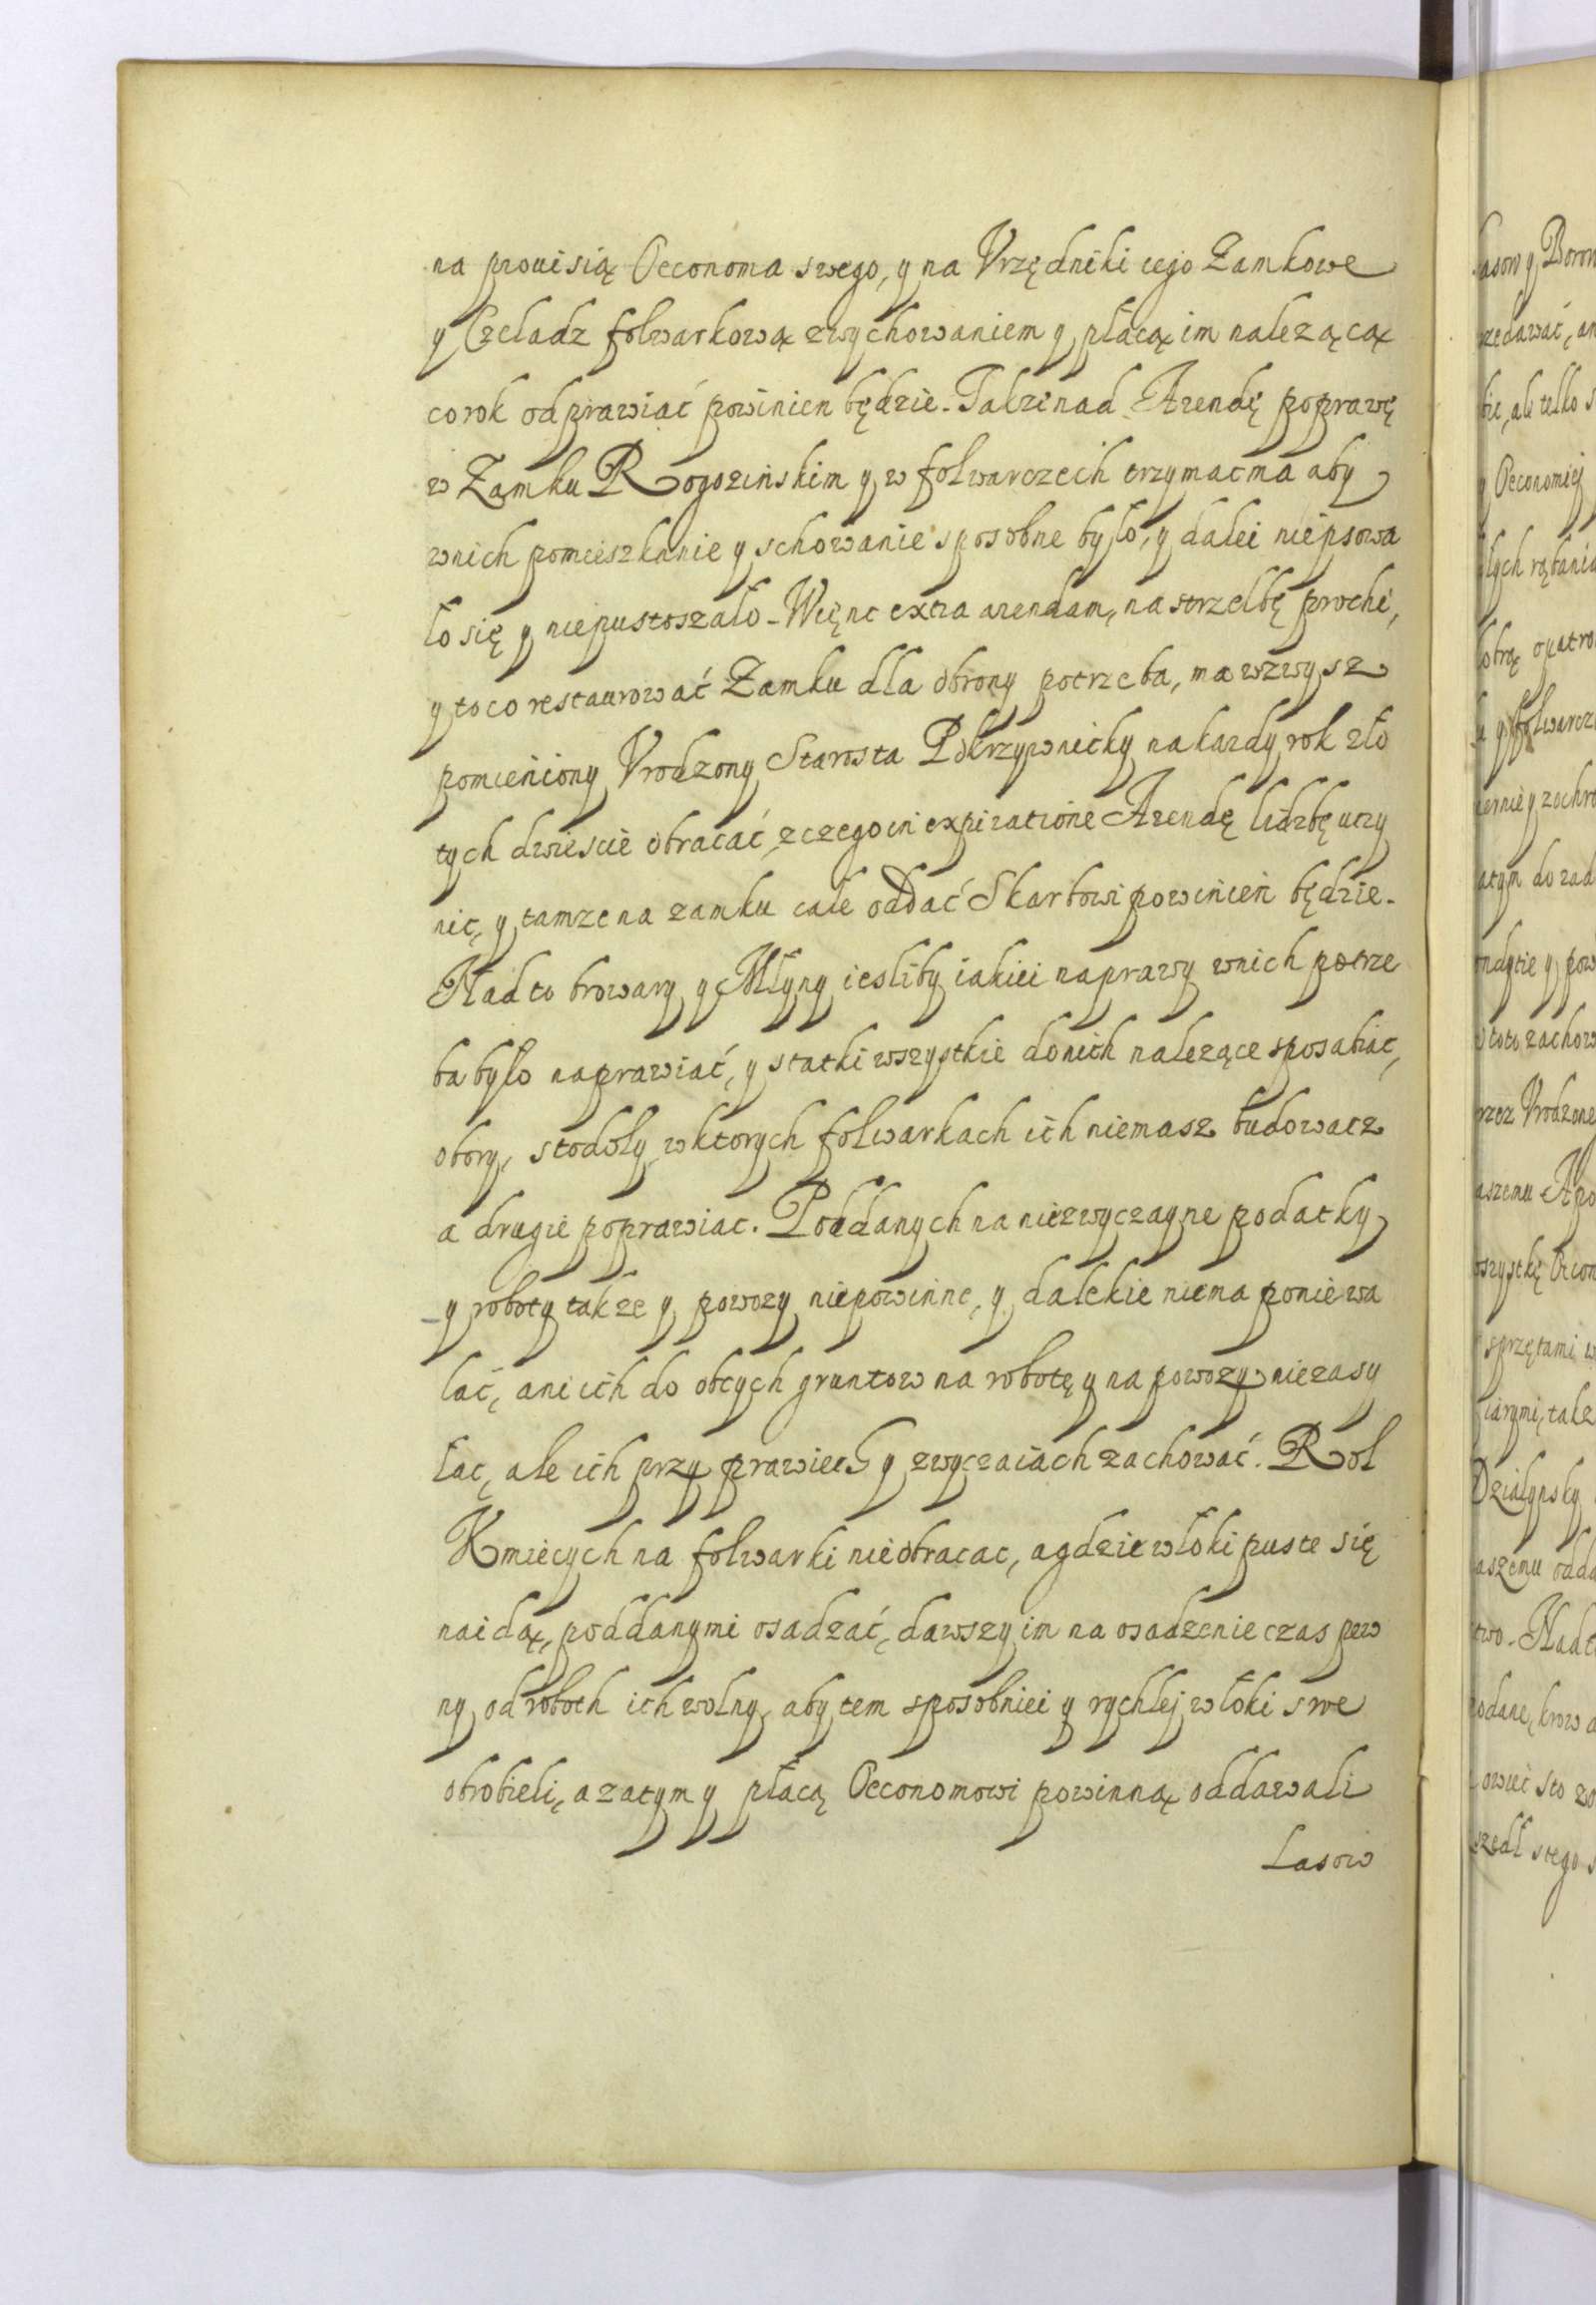 na prouisią Oeconoma swego, y na Vrzędniki iego Zamkowe
y Czeladz folwarkową zwychowaniem y płacą im nalezącą
corok odprawiać powinien będzie. Takze nad Arendę poprawę
w Zamku Rogozińskim y w folwarczech trzymac ma aby
wnich pomieszkanie y schowanie sposobne było, y dalei niepsowa
ło się y niepustoszało. Więnc extra arendam, na strzelbę prochi,
y to co restaurować Zamku dla obrony potrzeba, ma wzwysz
pomieniony Vrodzony Starosta Pokrzywnicky na kazdy rok zło
tych dwiescie obracać, z czego in expiratione Arendę lidzbę uczy
nić, y tamze na zamku całe oddać Skarbowi powinien będzie.
Nad to browary y Młyny iesliby iakiei naprawy wnich potrze
ba było naprawiać, y statki wszystkie do nich nalezące sposabiać,
obory, stodoły w ktorych folwarkach ich niemasz budowacz
a drugie poprawiac. Poddanych na niezwyczayne podatky
y roboty także y powozy niepowinne, y dalekie niema poniewa
lać, ani ich do obcych gruntow na robotę y na powozy niezasy
łać, ale ich przy prawiech y zwyczaiach zachować. Rol
Kmiecych na folwarki nieobracac, a gdzie włoki puste się
naidą, poddanymi osadzać, dawszy im na osadzenie czas pew
ny od roboth ich wolny, aby tem sposobniei y rychlej włoki swe
obrobieli, a zatym y płacą Oeconomowi powinną oddawali
Lasow